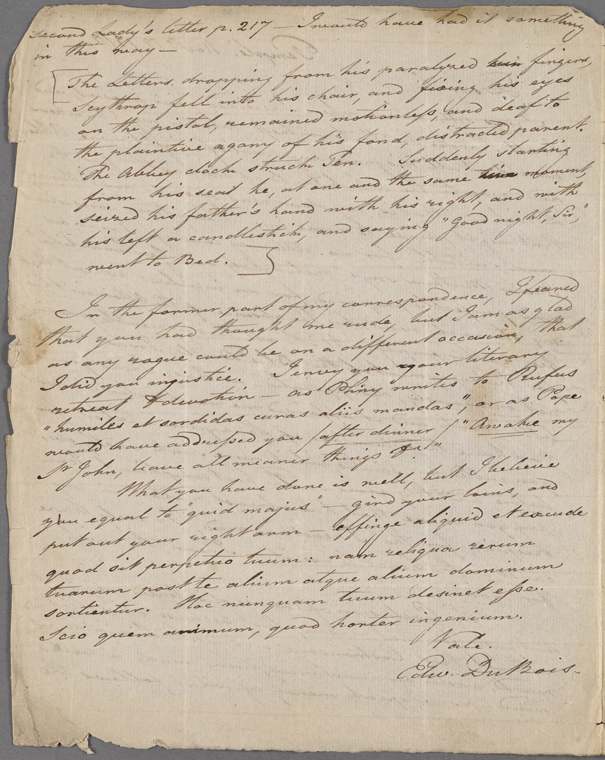 second Lady's letter p. 217 — I would have had it something
in this way —
The Letters dropping from his paralyzed fingers,
Scythrop fell into his chair, and fixing his eyes
on the pistol, remained motionless, and deaf to
the plaintive agony of his fond, distracted parent.
The Abbey clock struck Ten. Suddenly starting
from his seat he, at one and the same time moment,
seized his father's hand with his right, and with
his left a candlestick, and saying "Good night, Sir,"
went to Bed.
In the former part of my correspondence, I feared
that you had thought me rude, but I am as glad
as any rogue could be on a different occasion, that
I did you injustice. I envy you your literary
retreat & devotion — as Pliny writes to Rufus
"humiles et sordidas curas aliis mandas", or as Pope
would have addressed you (after dinner) "Awake my
St John, leave all meaner things &c"
What you have done is well, but I believe
you equal to quid majus" — gird your loins, and
put out your right arm — effinge aliquid et excude
quod sit perpetuo tuum: nam reliqua rerum
tuarum post te alium atque alium dominum
sortientur. Hoc nunquam tuum desinet esse.
Scio quem animum, quod horter ingenium.
Vale.
Edw. DuBois-